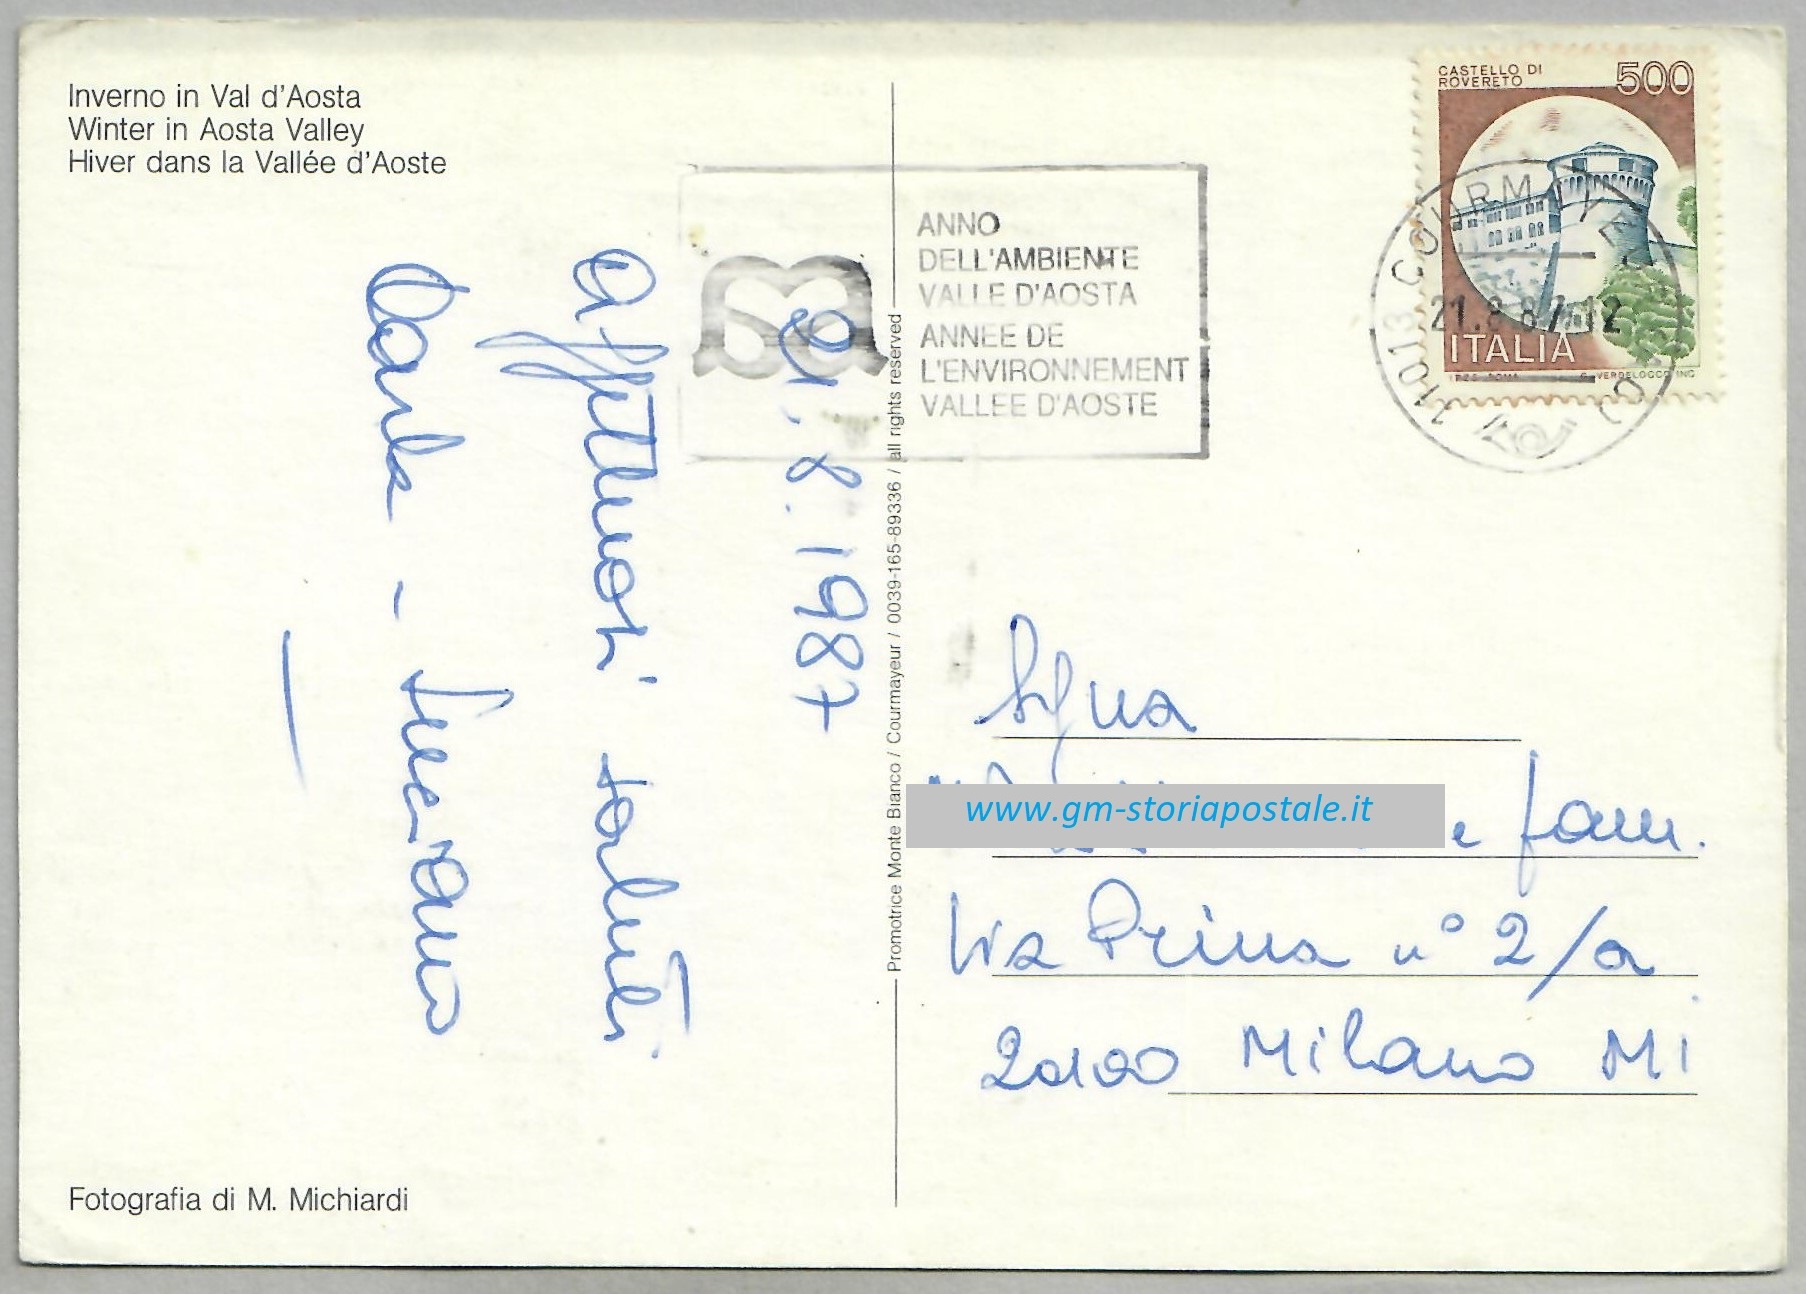 Inverno in Val d'Aosta
Winter in Aosta Valley
Hiver dans la Vallée d'Aoste
21.8.1987
Affettuosi saluti
Carla - Luciano
Fotografia di M. Michiardi
Promotrice Monte Bianco / Courmayeur / 0039-165-89336 / all rights reserved
ANNO
DELL'AMBIENTE
VALLE D'AOSTA
ANNEE DE
L'ENVIRONNEMENT
VALLEE D'AOSTE
CASTELLO DI
ROVERETO
500
ITALIA
I.P.Z.S. ROMA E. VERDELOCCO INC.
11013 COURMAYEUR
21.8.87.12
Sig.na
www.gm-storiapostale.it
e fam.
Via Prina n° 2/a
20100 Milano MI